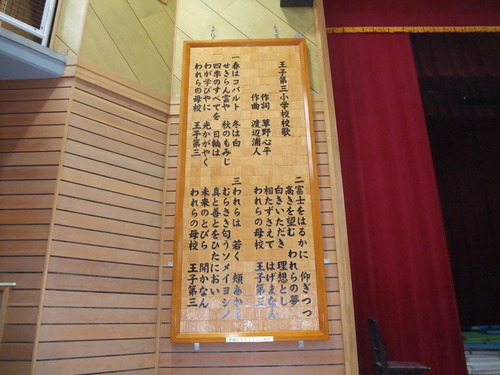 王子第三小学校校歌
作詞 草野心平
作曲 渡辺浦人
一春はコバルト 冬は白
せきらん雲や 秋のもみじ
四季のすべてを 日輪は
わが学びやに 光かがやく
われらの母校 王子第三
二富士をはるかに 仰ぎつつ
高きを望む われらの夢
白きいただき 理想とし
相たずさえて はげまなん
われらの母校 王子第三
三われらは 若く 頬あかく
むらさき匂う ソメイヨシノ
真と善とを ひたにおい
未来のとびら 開かなん
われらの母校 王子第三